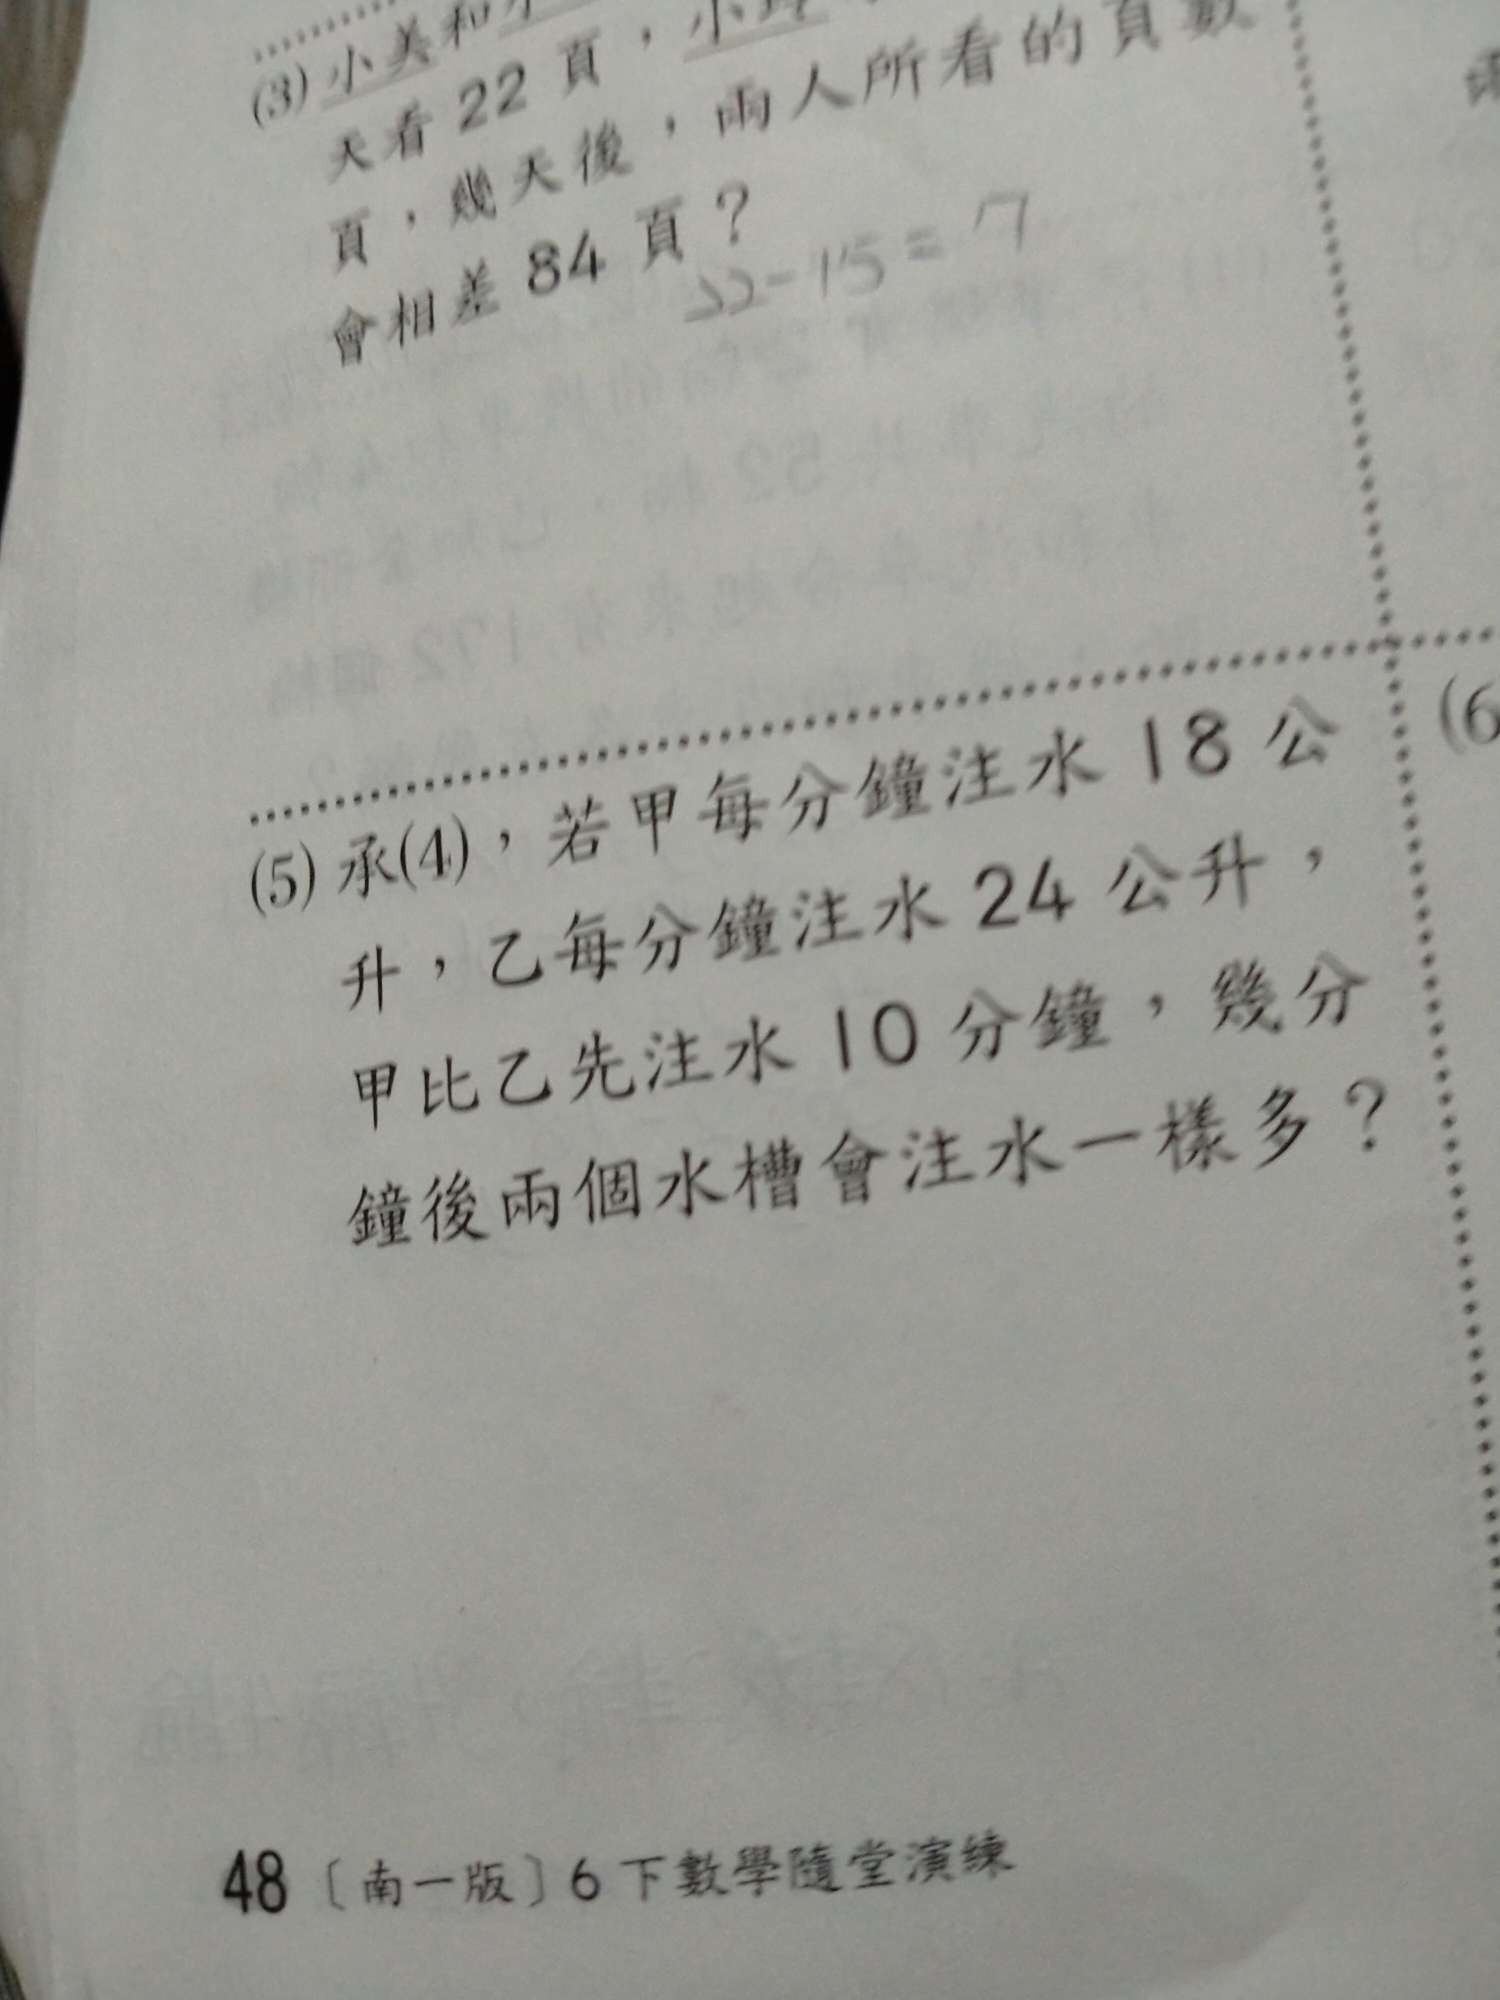 (3) 小美和小
天看 22 頁，小
頁，幾天後，兩人所看的頁數
會相差 84 頁？
22-15=7
(5) 承(4)，若甲每分鐘注水 18 公
升，乙每分鐘注水 24 公升，
甲比乙先注水 10 分鐘，幾分
鐘後兩個水槽會注水一樣多？
(6
48〔南一版〕6 下數學隨堂演練